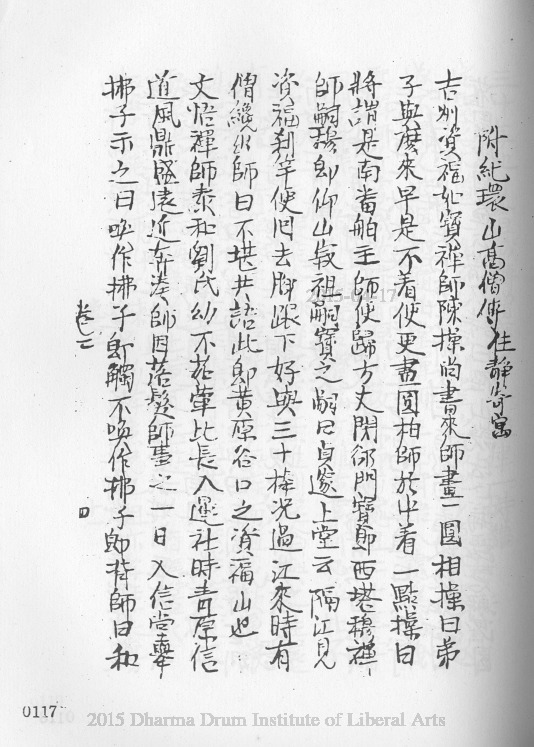 附紀環山高僧傳住靜寄寓
吉州資福如寶禪師陳操尚書來師畫一圓相操曰弟
子與麼來早是不着便更畫圓相師於中着一點操曰
將謂是南畨舶主師便歸方丈閉卻門寶即西塔穆禪
師嗣穆即仰山寂祖嗣寶之嗣曰貞邃上堂云隔江見
資福刹竿便回去脚跟下好與三十棒况過江來時有
僧纔出師曰不堪共語此即黃原谷口之資福山也
文悟禪師泰和劉氏幼不茹葷比長入蓮社時青原信
道風鼎盛遠近奔湊師因落髮師事之一日入信嘗舉
拂子示之曰喚作拂子即觸不喚作拂子即背師曰和
卷二
四
0117
2015-04-17
2015 Dharma Drum Institute of Liberal Arts